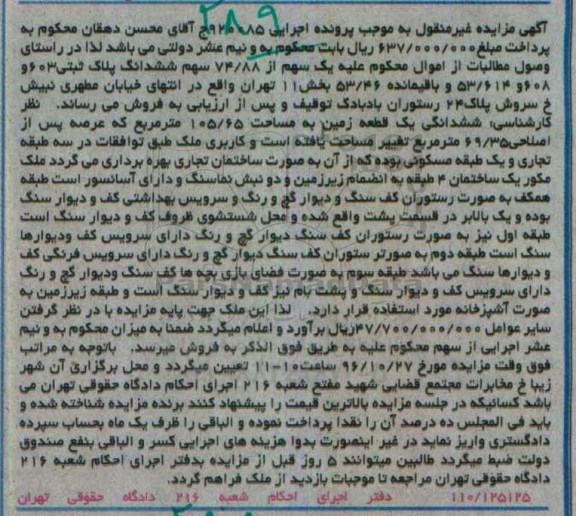 ۳۸۹
آگهی مزایده غیرمنقول به موجب پرونده اجرایی ۹۲۰۰۸۵ج آقای محسن دهقان محکوم به
پرداخت مبلغ ۶۳۷/۰۰۰/۰۰۰ ریال بابت محکوم به و نیم عشر دولتی می باشد لذا در راستای
وصول مطالبات از اموال محکوم علیه یک سهم از ۷۴/۸۸ سهم ششدانگ پلاک ثبتی۶۰۳و
۶۰۸و ۵۳/۶۱۴ و باقیمانده ۵۳/۴۶ بخش۱۱ تهران واقع در انتهای خیابان مطهری نبش
خ سروش پلاک۲۴ رستوران بادبادک توقیف و پس از ارزیابی به فروش می رساند. نظر
کارشناسی: ششدانگی یک قطعه زمین به مساحت ۱۰۵/۶۵ مترمربع که عرصه پس از
اصلاحی۶۹/۳۵ مترمربع تغییر مساحت یافته است و کاربری ملک طبق توافقات در سه طبقه
تجاری و یک طبقه مسکونی بوده که از آن به صورت ساختمان تجاری بهره برداری می گردد ملک
مکور یک ساختمان ۴ طبقه به انضمام زیرزمین و دو نبش نماسنگ و دارای آسانسور است طبقه
همکف به صورت رستوران کف سنگ و دیوار گچ و رنگ و سرویس بهداشتی کف و دیوار سنگ
بوده و یک بالابر در قسمت پشت واقع شده و محل شستشوی ظروف کف و دیوار سنگ است
طبقه اول نیز به صورت رستوران کف سنگ دیوار گچ و رنگ دارای سرویس کف ودیوارها
سنگ است طبقه دوم به صورتر ستوران کف سنگ دیوار گچ و رنگ دارای سرویس فرنگی کف
و دیوارها سنگ می باشد طبقه سوم به صورت فضای بازی بچه ها کف سنگ ودیوار گچ و رنگ
دارای سرویس کف و دیوار سنگ و پشت بام نیز کف و دیوار سنگ است و طبقه زیرزمین به
صورت آشپزخانه مورد استفاده قرار دارد. لذا این ملک جهت پایه مزایده با در نظر گرفتن
سایر عوامل ۴۷/۷۰۰/۰۰۰/۰۰۰ریال برآورد و اعلام میگردد ضمنا به میزان محکوم به و نیم
عشر اجرایی از سهم محکوم علیه به طریق فوق الذکر به فروش میرسد. باتوجه به مراتب
فوق وقت مزایده مورخ ۹۶/۱۰/۲۷ ساعت۱۰-۱۱ تعیین میگردد و محل برگزاری آن شهر
زیبا خ مخابرات مجتمع قضایی شهید مفتح شعبه ۲۱۶ اجرای احکام دادگاه حقوقی تهران می
باشد کسانیکه در جلسه مزایده بالاترین قیمت را پیشنهاد کنند برنده مزایده شناخته شده و
باید فی المجلس ده درصد آن را نقدا پرداخت نموده و الباقی را ظرف یک ماه بحساب سپرده
دادگستری واریز نماید در غیر اینصورت بدوا هزینه های اجرایی کسر و الباقی بنفع صندوق
دولت ضبط میگردد طالبین میتوانند ۵ روز قبل از مزایده بدفتر اجرای احکام شعبه ۲۱۶
دادگاه حقوقی تهران مراجعه تا موجبات بازدید از ملک فراهم گردد.
۱۱۰/۱۲۵۱۲۵ دفتر اجرای احکام شعبه ۲۱۶ دادگاه حقوقی تهران